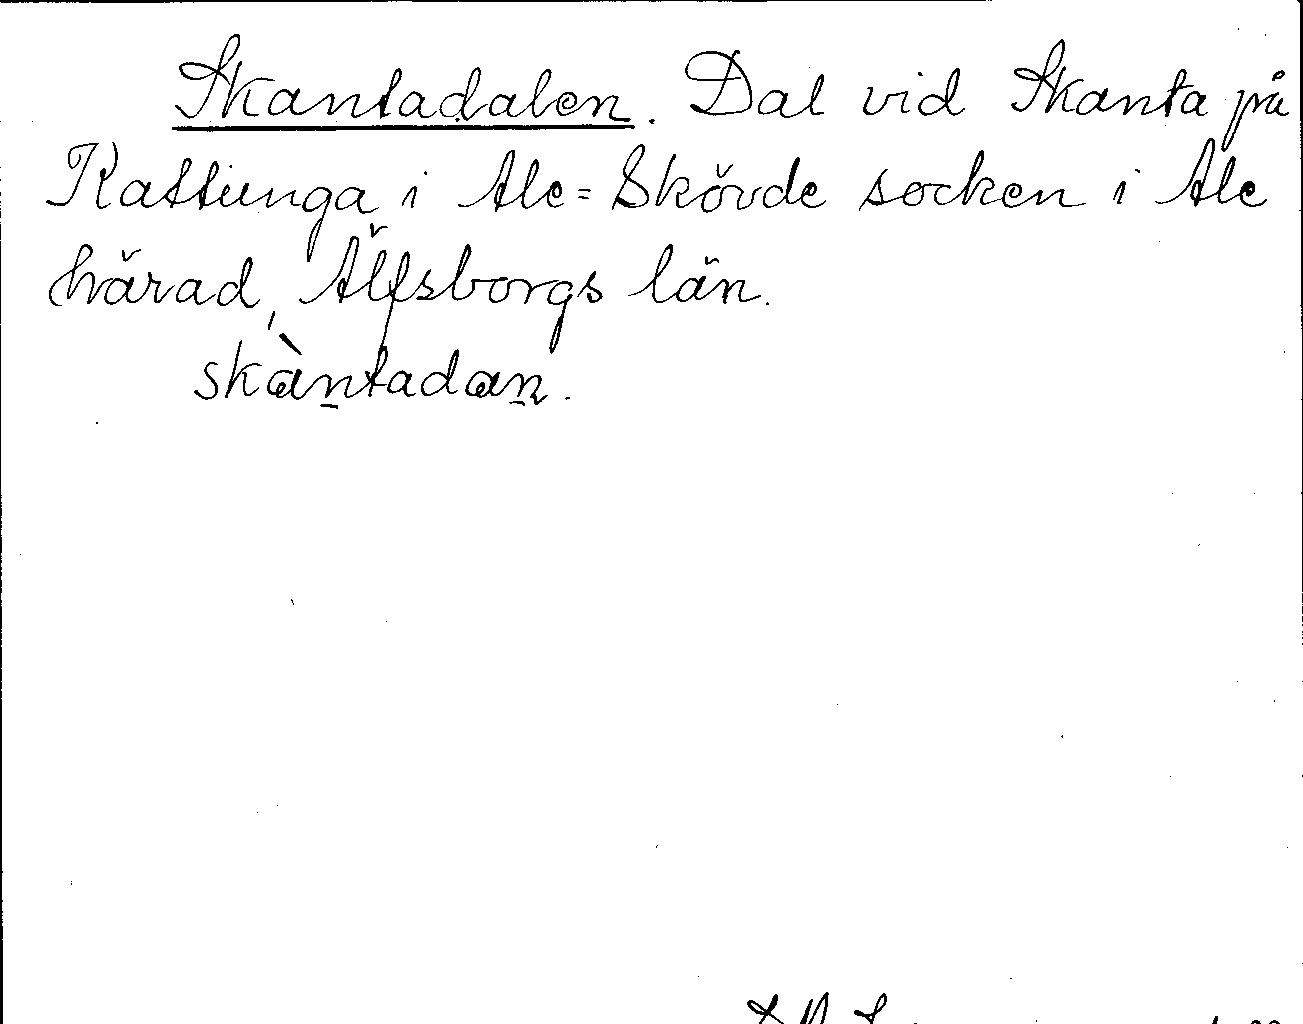 Skantadalen. Dal vid Skanta på
Kattunga i Ale=Skövde socken i Ale
härad, Älfsborgs län.
skàntadan.